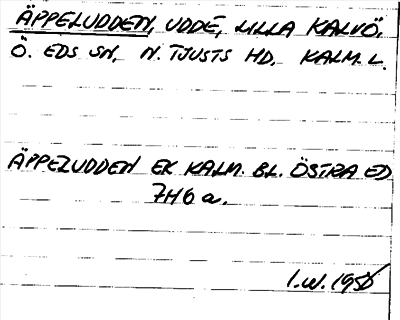 ÄPPELUDDEN, UDDE, LILLA KALVÖ,
Ö. EDS SN, N. TJUSTS HD, KALM. L.
ÄPPELUDDEN EK KALM. BL. ÖSTRA ED
7H6a.
I.W. 1956